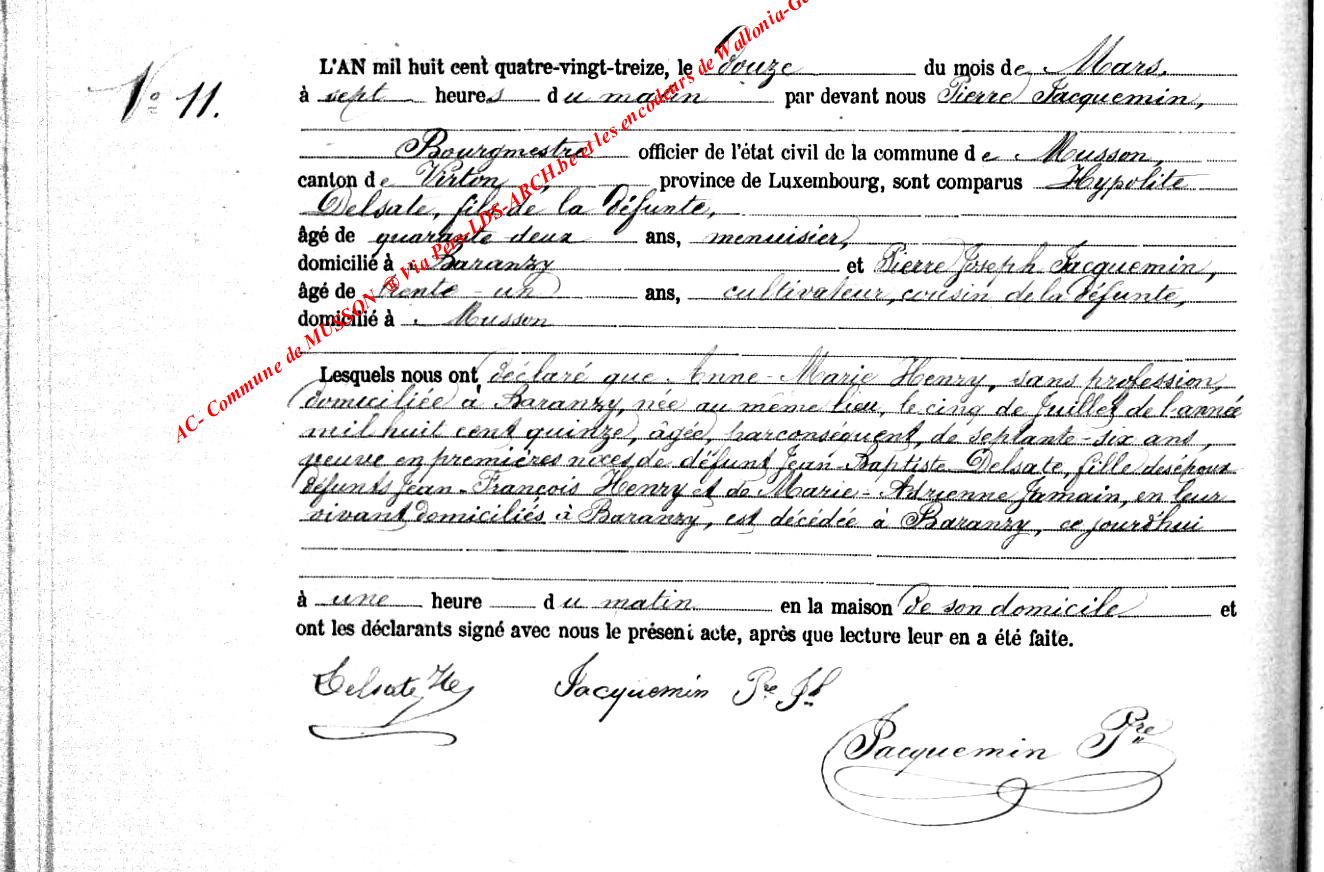 N° 11.
L'AN mil huit cent quatre-vingt-treize, le douze du mois de Mars,
à sept heures du matin par devant nous Pierre Jacquemin,
Bourgmestre officier de l'état civil de la commune de Musson,
canton de Virton, province de Luxembourg, sont comparus Hypolite
Delsate, fils de la défunte,
âgé de quarante deux ans, menuisier,
domicilié à Baranzy et Pierre Joseph Jacquemin,
âgé de trente-un ans, cultivateur, cousin de la défunte,
domicilié à Musson
Lesquels nous ont déclaré que Anne-Marie Henry, sans profession,
domiciliée à Baranzy, née au même lieu, le cinq de Juillet de l'année
mil huit cent quinze, âgée, parconséquent, de septante-six ans,
veuve en premières noces de défunt Jean-Baptiste Delsate, fille des époux
défunts Jean-François Henry et de Marie-Adrienne Jamain, en leur
vivant domiciliés à Baranzy, est décédée à Baranzy, ce jourd'hui
à une heure du matin en la maison de son domicile et
ont les déclarants signé avec nous le présent acte, après que lecture leur en a été faite.
Delsate He Jacquemin Pre Jh
Jacquemin Pre
AC- Commune de MUSSON ® Via Pers-LDS-ARCH.be et les encodeurs de Wallonia-Ge